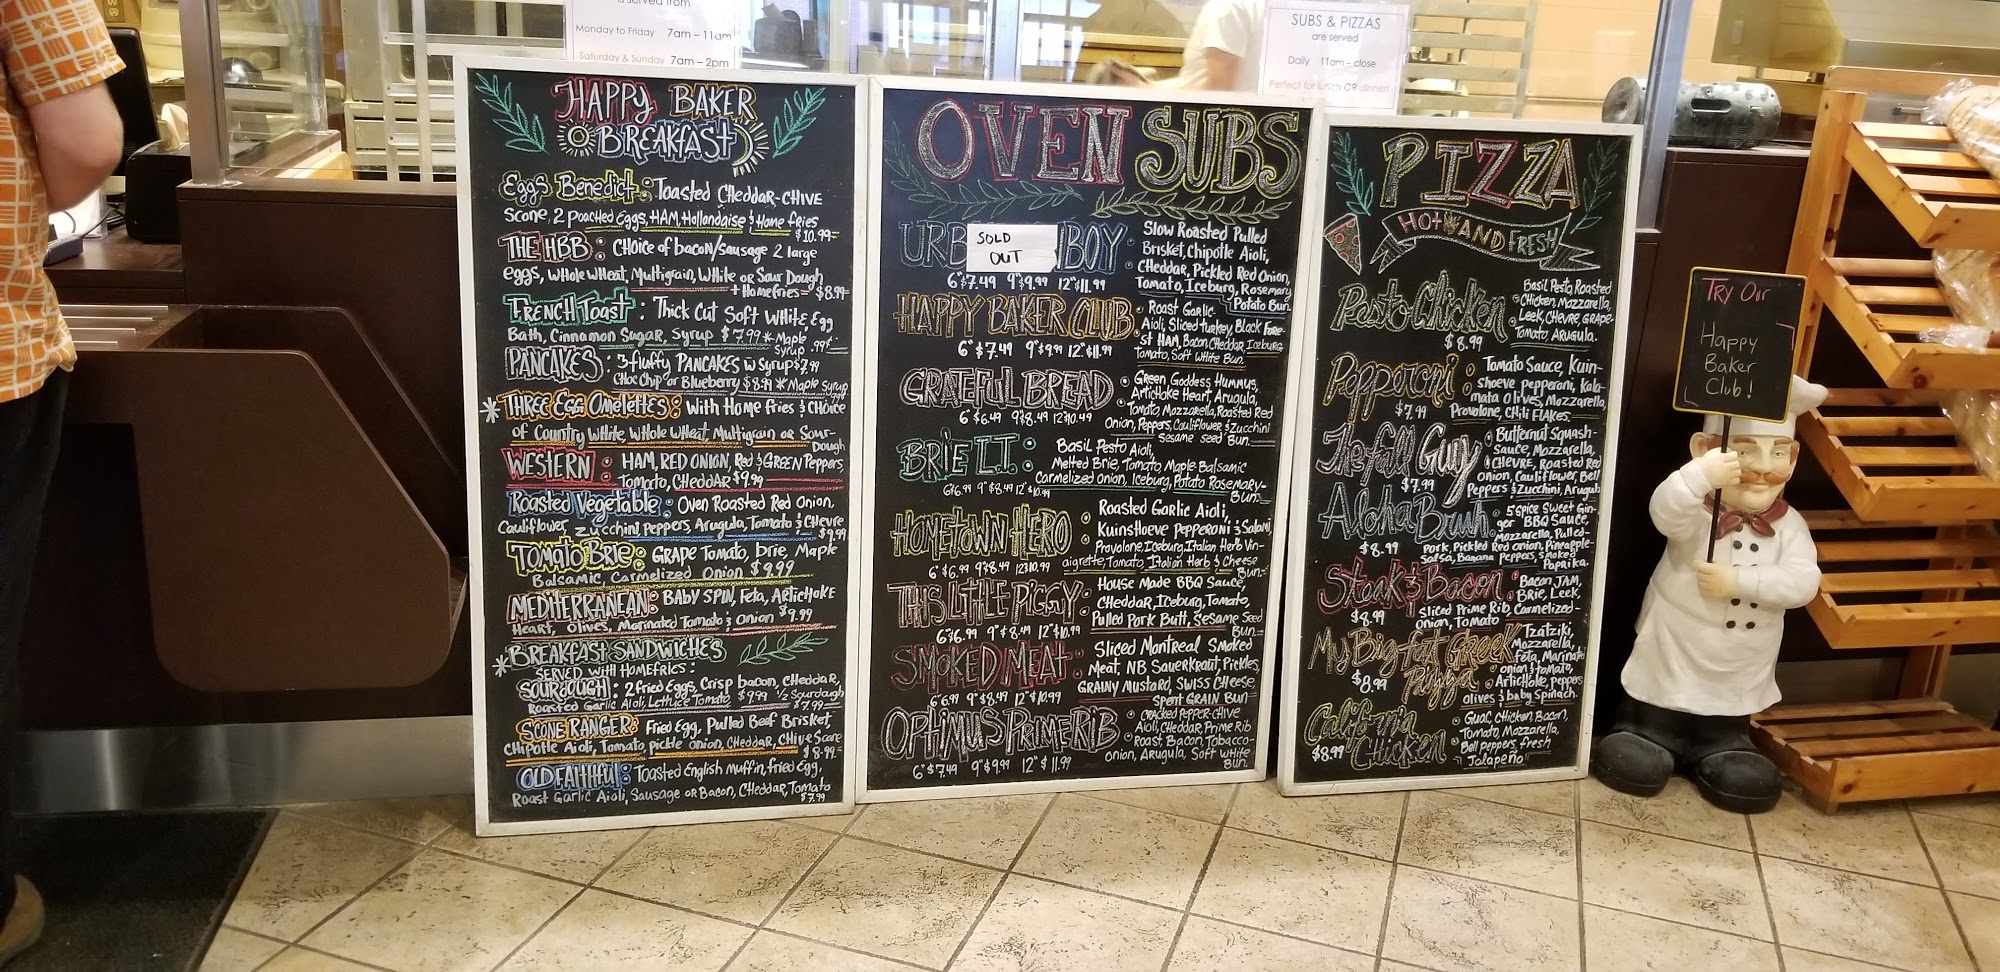 is served from
Monday to Friday 7am – 11am
Saturday & Sunday 7am – 2pm
SUBS & PIZZAS
are served
Daily 11am – close
Perfect for lunch OR dinner!
HAPPY BAKER
BREAKFAST
Eggs Benedict: Toasted Cheddar-CHIVE
Scone, 2 poached Eggs, HAM, Hollandaise & Home fries
$10.99
THE HBB: CHoice of bacon/Sausage 2 large
eggs, Whole Wheat, Multigrain, White or Sour Dough
+ Homefries $8.99
FRENCH TOAST: Thick Cut Soft White Egg
Bath, Cinnamon Sugar, Syrup $7.99 *Maple
Syrup .99¢
PANCAKES: 3 fluffy PANCAKES w syrup $7.99
CHOC CHIP or Blueberry $8.99 *Maple Syrup
* THREE EGG Omelettes: With Home fries & CHOice
of Country White, Whole Wheat, Multigrain or Sour-
Dough
WESTERN: HAM, RED ONION, Red & GREEN Peppers,
Tomato, CHeddAR $9.99
Roasted Vegetable: Oven Roasted Red Onion,
Cauliflower, Zucchini, Peppers, Arugula, Tomato & CHevre
$9.99
TOMATO BRIE: GRAPE Tomato, brie, Maple
Balsamic, Carmelized Onion $9.99
MEDITERRANEAN: BABY SPIN, Feta, ARTICHOKE
Heart, Olives, Marinated Tomato & Onion $9.99
* BREAKFAST SANDWICHES
SERVED WITH HOMEFRIES:
SOURDOUGH: 2 fried Eggs, Crisp bacon, CHeddAR,
Roasted Garlic Aioli, Lettuce Tomato $9.99 ½ Sourdough
$7.99
SCONE RANGER: Fried Egg, Pulled Beef Brisket
CHipotle Aioli, Tomato, pickle onion, CHeddar, CHive Scone
$8.99
OLD FAITHFUL: Toasted English Muffin, fried Egg,
Roast Garlic Aioli, Sausage or Bacon, CHeddar, Tomato
$7.99
OVEN SUBS
URB SOLD OUT BOY: Slow Roasted Pulled
Brisket, Chipotle Aioli,
CHeddar, Pickled Red Onion,
Tomato, Iceburg, Rosemary
Potato Bun
6" $7.49 9" $9.99 12" $11.99
HAPPY BAKER CLUB: Roast Garlic
Aioli, Sliced turkey, Black Fore-
st HAM, Bacon, Cheddar, Iceburg
Tomato, Soft White Bun
6" $7.49 9" $9.99 12" $11.99
GRATEFUL BREAD: Green Goddess Hummus,
Artichoke Heart, Arugula,
Tomato, Mozzarella, Roasted Red
Onion, Peppers, Cauliflower & Zucchini
Sesame Seed Bun
6" $6.49 9" $8.49 12" $10.49
BRIE L.T.: Basil Pesto Aioli,
Melted Brie, Tomato, Maple Balsamic
Carmelized Onion, Iceburg, Potato Rosemary-
Bun
6" $6.99 9" $8.49 12" $10.99
HOMETOWN HERO: Roasted Garlic Aioli,
Kuinshoeve pepperoni & Salami,
Provolone, Iceburg, Italian Herb Vin-
aigrette, Tomato, Italian Herb & Cheese
Bun
6" $6.99 9" $8.49 12" $10.99
THIS LITTLE PIGGY: House Made BBQ Sauce,
CHeddar, Iceburg, Tomato,
Pulled Pork Butt, Sesame Seed
Bun
6" $6.99 9" $8.49 12" $10.99
SMOKED MEAT: Sliced Montreal Smoked
Meat, NB Sauerkraut, Pickles,
GRAINY MUSTARD, SWISS CHeese,
Spent GRAIN Bun
6" $6.99 9" $8.49 12" $10.99
OPTIMUS PRIME RIB: CRACKED PEPPER-CHIVE
Aioli, CHeddar, Prime Rib
Roast, Bacon, Tobacco-
onion, Arugula, Soft White
Bun
6" $7.49 9" $9.99 12" $11.99
PIZZA
HOT AND FRESH
Pesto Chicken: Basil Pesto, Roasted
Chicken, Mozzarella,
Leek, CHEVRE, GRAPE-
Tomato, Arugula
$8.99
Pepperoni: Tomato Sauce, Kuin-
shoeve pepperoni, Kala-
mata olives, Mozzarella,
Provolone, CHili FLAKES
$7.99
The Fall Guy: Butternut Squash-
Sauce, Mozzarella,
CHEVRE, Roasted Red
Onion, Cauliflower, Bell
Peppers & Zucchini, Arugula
$7.99
Aloha Bruh: 5 Spice Sweet Gin-
ger BBQ Sauce,
Mozzarella, Pulled-
Pork, Pickled Red onion, Pineapple-
Salsa, Banana Peppers, Smoked
Paprika
$8.99
Steak & Bacon: Bacon JAM,
Brie, Leek,
Sliced Prime Rib, Carmelized-
onion, Tomato
$8.99
My Big fat GREEK Pizza: Tzatziki,
Mozzarella,
Feta, Marinated
onion & tomato,
Artichoke, peppers
olives & baby Spinach
$8.99
California Chicken: Guac, CHicken, Bacon,
Tomato, Mozzarella,
Bell peppers, fresh
Jalapeño
$8.99
TRY Our
Happy
Baker
Club!